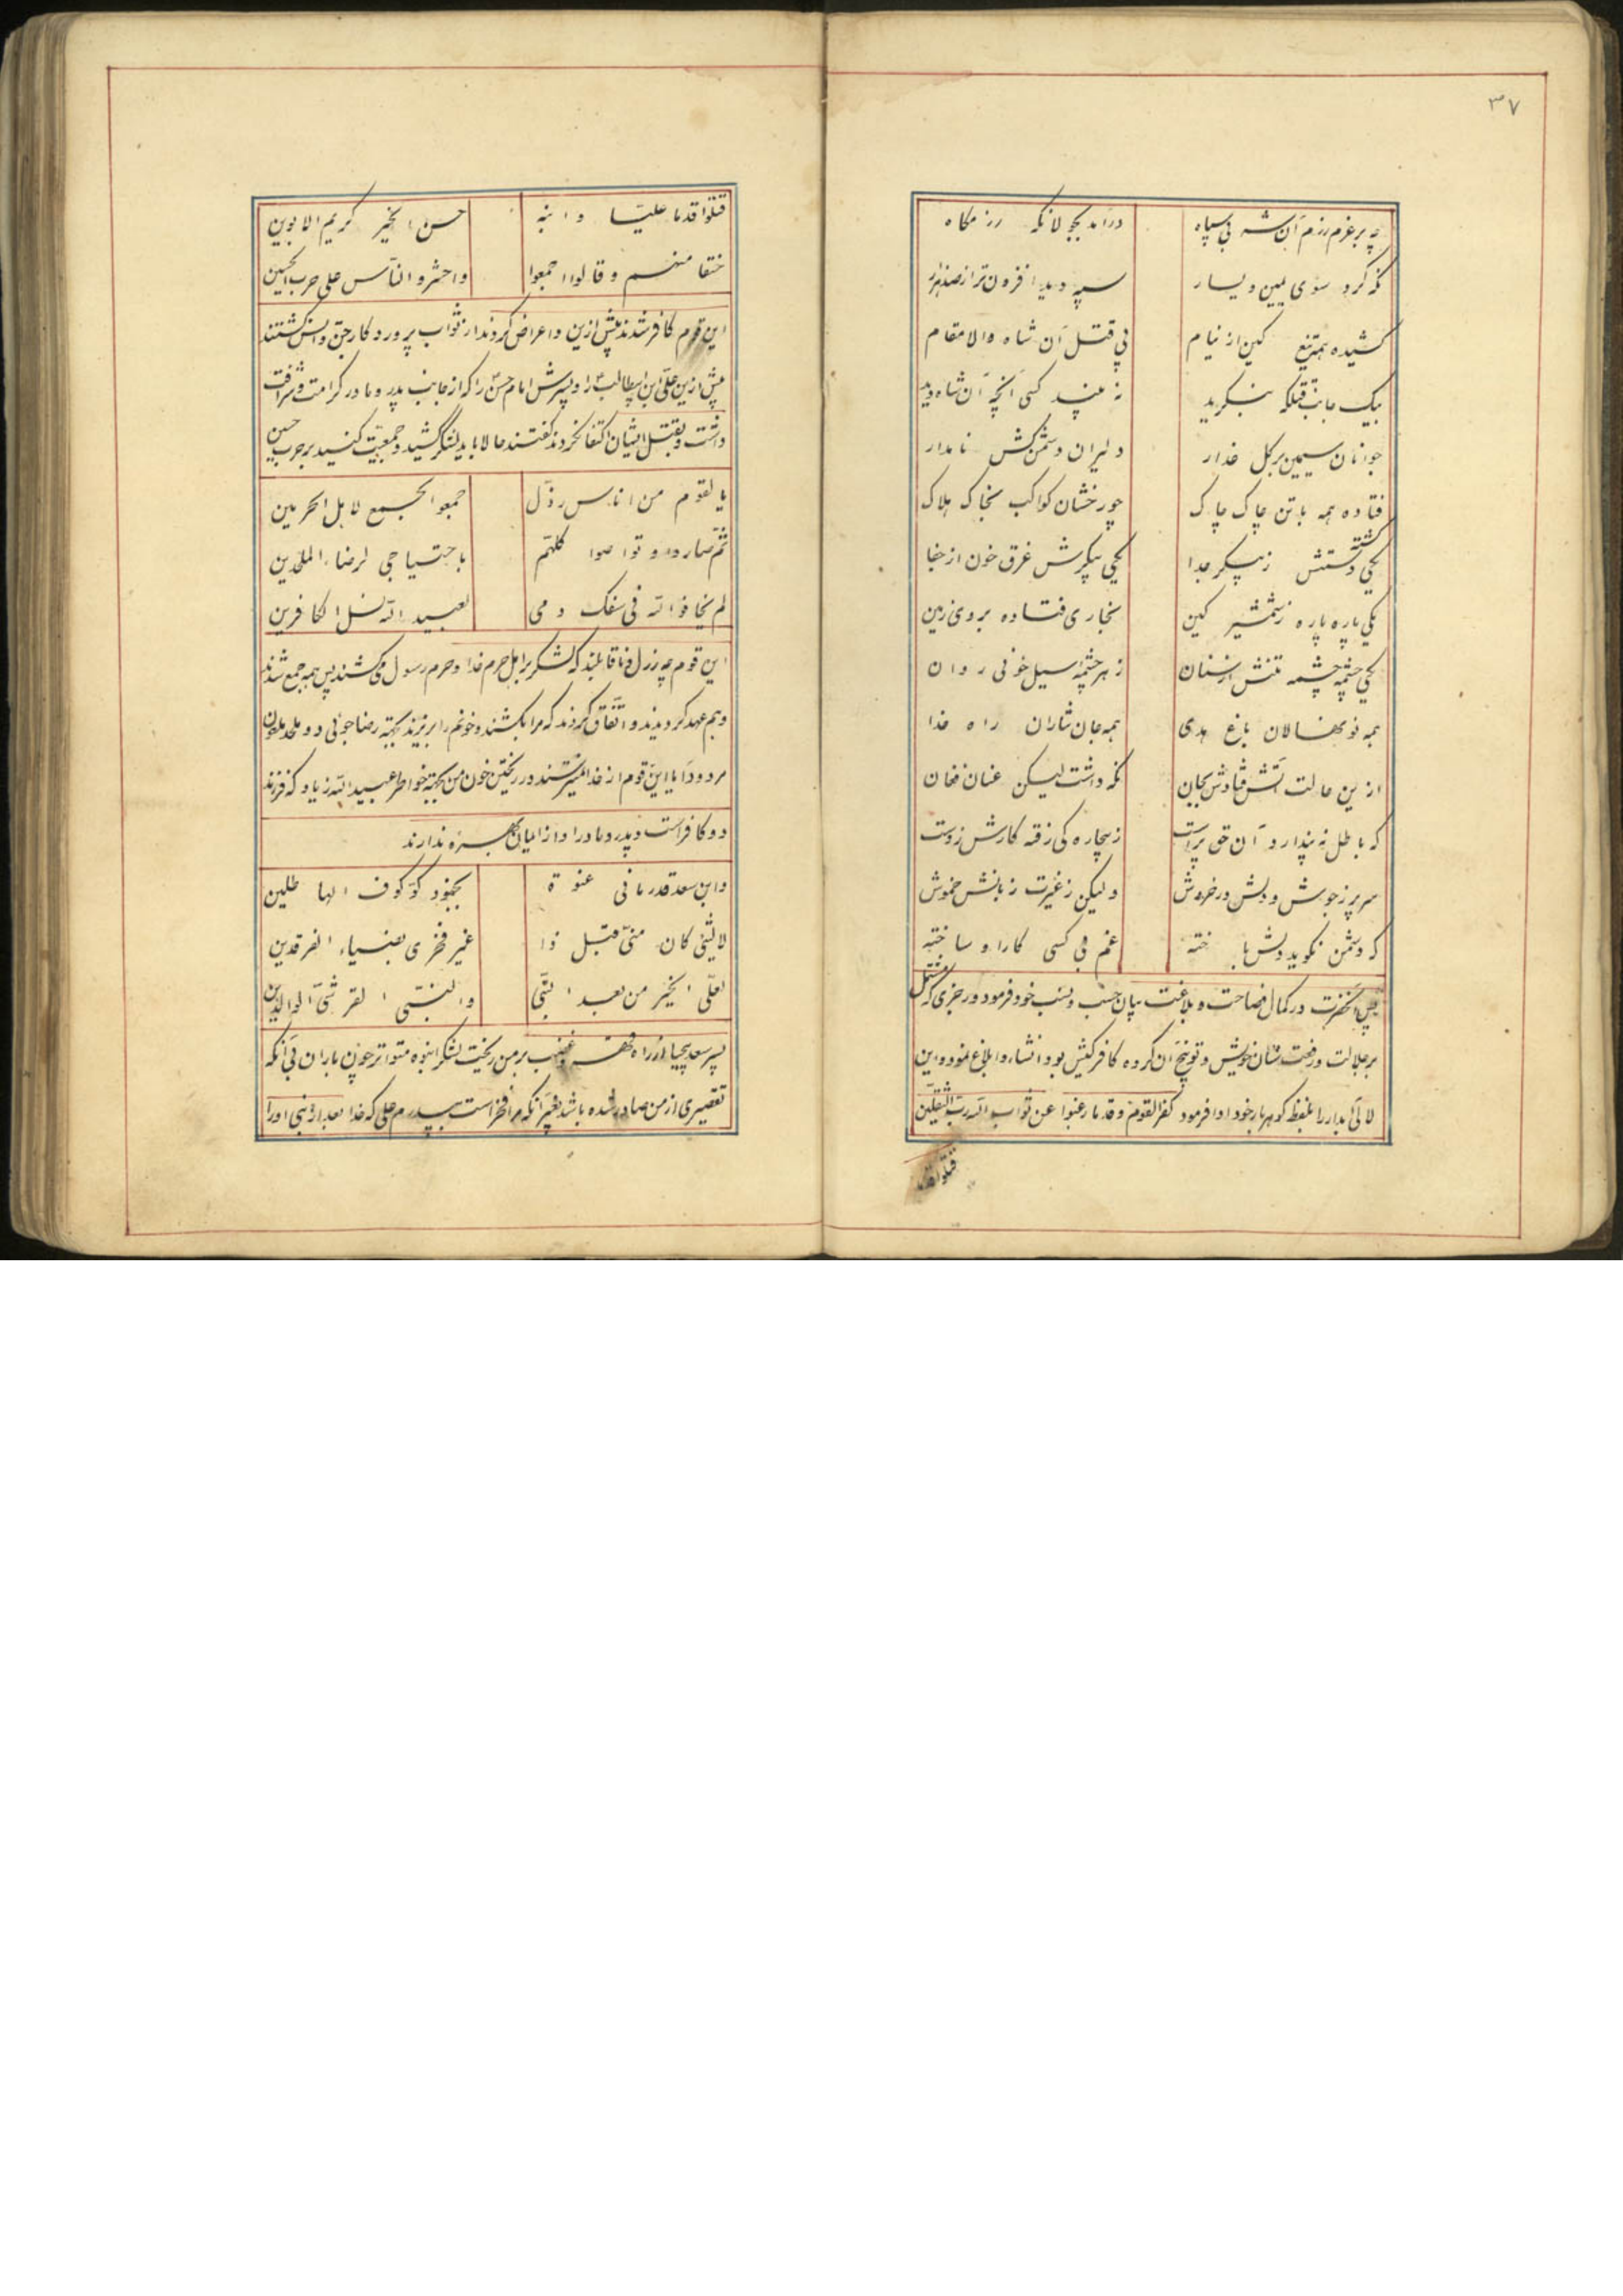 ۳۷
چه بر عزم رزم آن شه بی سپاه درآمد بجولانگه رزمگاه
نگه کرد سوی یمین و یسار سپه دید افزون تر از صد هزار
کشیده همه تیغ کین از نیام پی قتل آن شاه والا مقام
بیک جانب قتلگه بنگرید نه بیند کسی آنچه آن شاه دید
جوانان سیمین بر گل عذار دلیران دشمن کش نامدار
فتاده همه با تن چاک چاک چو رخشان کواکب بخاک هلاک
یکی گشته دستش ز پیکر جدا یکی پیکرش غرق خون از جفا
یکی پاره پاره ز شمشیر کین بخاری فتاده بروی زمین
یکی چشمه چشمه تنش از سنان ز هر چشمه سیل خونی روان
همه نونهالان باغ هدی همه جان نثاران راه خدا
ازین حالت آتش فتادش بجان نگه داشت لیکن عنان فغان
که باطل نه پندارد آن حق پرست ز بیچاره کی رفته کارش ز دست
سر پر ز جوش و دلش در خروش ولیکن ز غیرت زبانش خموش
که دشمن نگوید دلش باخته غم بی کسی کار او ساخته
پس آنحضرت در کمال فصاحت و بلاغت بیان حسب و نسب خود فرمود در رجزی که مشتمل
بر جلالت و رفعت شان خویش و توبیخ آن گروه کافر کیش بود انشاء و ابلاغ نمود و این
لآلی آبدار را بلفظ گوهر بار خود ادا فرمود کفر القوم و قدما رغبوا عن ثواب الله رب الثقلین
قتلوا قدما
قتلوا قدما علیا و ابنه حسن الخیر کریم الابوین
حنقا منهم و قالوا اجمعوا واحشروا الناس علی حرب الحسین
این قوم کافر شدند پیش ازین و اعراض کردند از ثواب پروردکار جن و انس کشتند
پیش ازین علی ابن ابیطالب را و پسرش امام حسن را که از جانب پدر و مادر کرامت و شرافت
داشت و بقتل ایشان اکتفا نکردند گفتند حالا باید لشگر کشید و جمعیت کنید بر حرب حسین
یا لقوم من اناس رذل جمعوا الجمع لاهل الحرمین
ثم صاروا و تواصوا کلهم باجتیاحی لرضاء الملحدین
لم یخافوا الله فی سفک دمی لعبید الله نسل الکافرین
این قوم چه رزل و ناقابلند که لشکر بر اهل حرم خدا و حرم رسول می کشند پس همه جمع شدند
و هم عهد کردیدند و اتفاق کردند که مرا بکشند و خونم را بریزند بجهة رضا جوئی دو ملحد ملعون
مردود آیا این قوم از خدا نمیترسند در ریختن خون من بجهة خواطر عبید الله زیاد که فرزند
دو کافر است و پدر و مادر او از ایمان بهره ندارند
وابن سعد قد رمانی عنوة بجنود کوکوف الهاطلین
لا لشئ کان منی قبل ذا غیر فخری بضیاء الفرقدین
بعلی الخیر من بعد النبی والنبی القرشی الوالدین
پسر سعد بیحیا از راه قهر و غضب بر من ریخت لشکر انبوه متواتر چون باران بی آنکه
تقصیری از من صادر شده باشد بغیر آنکه مرا فخر است بپدرم علی که خدا بعد از نبی او را